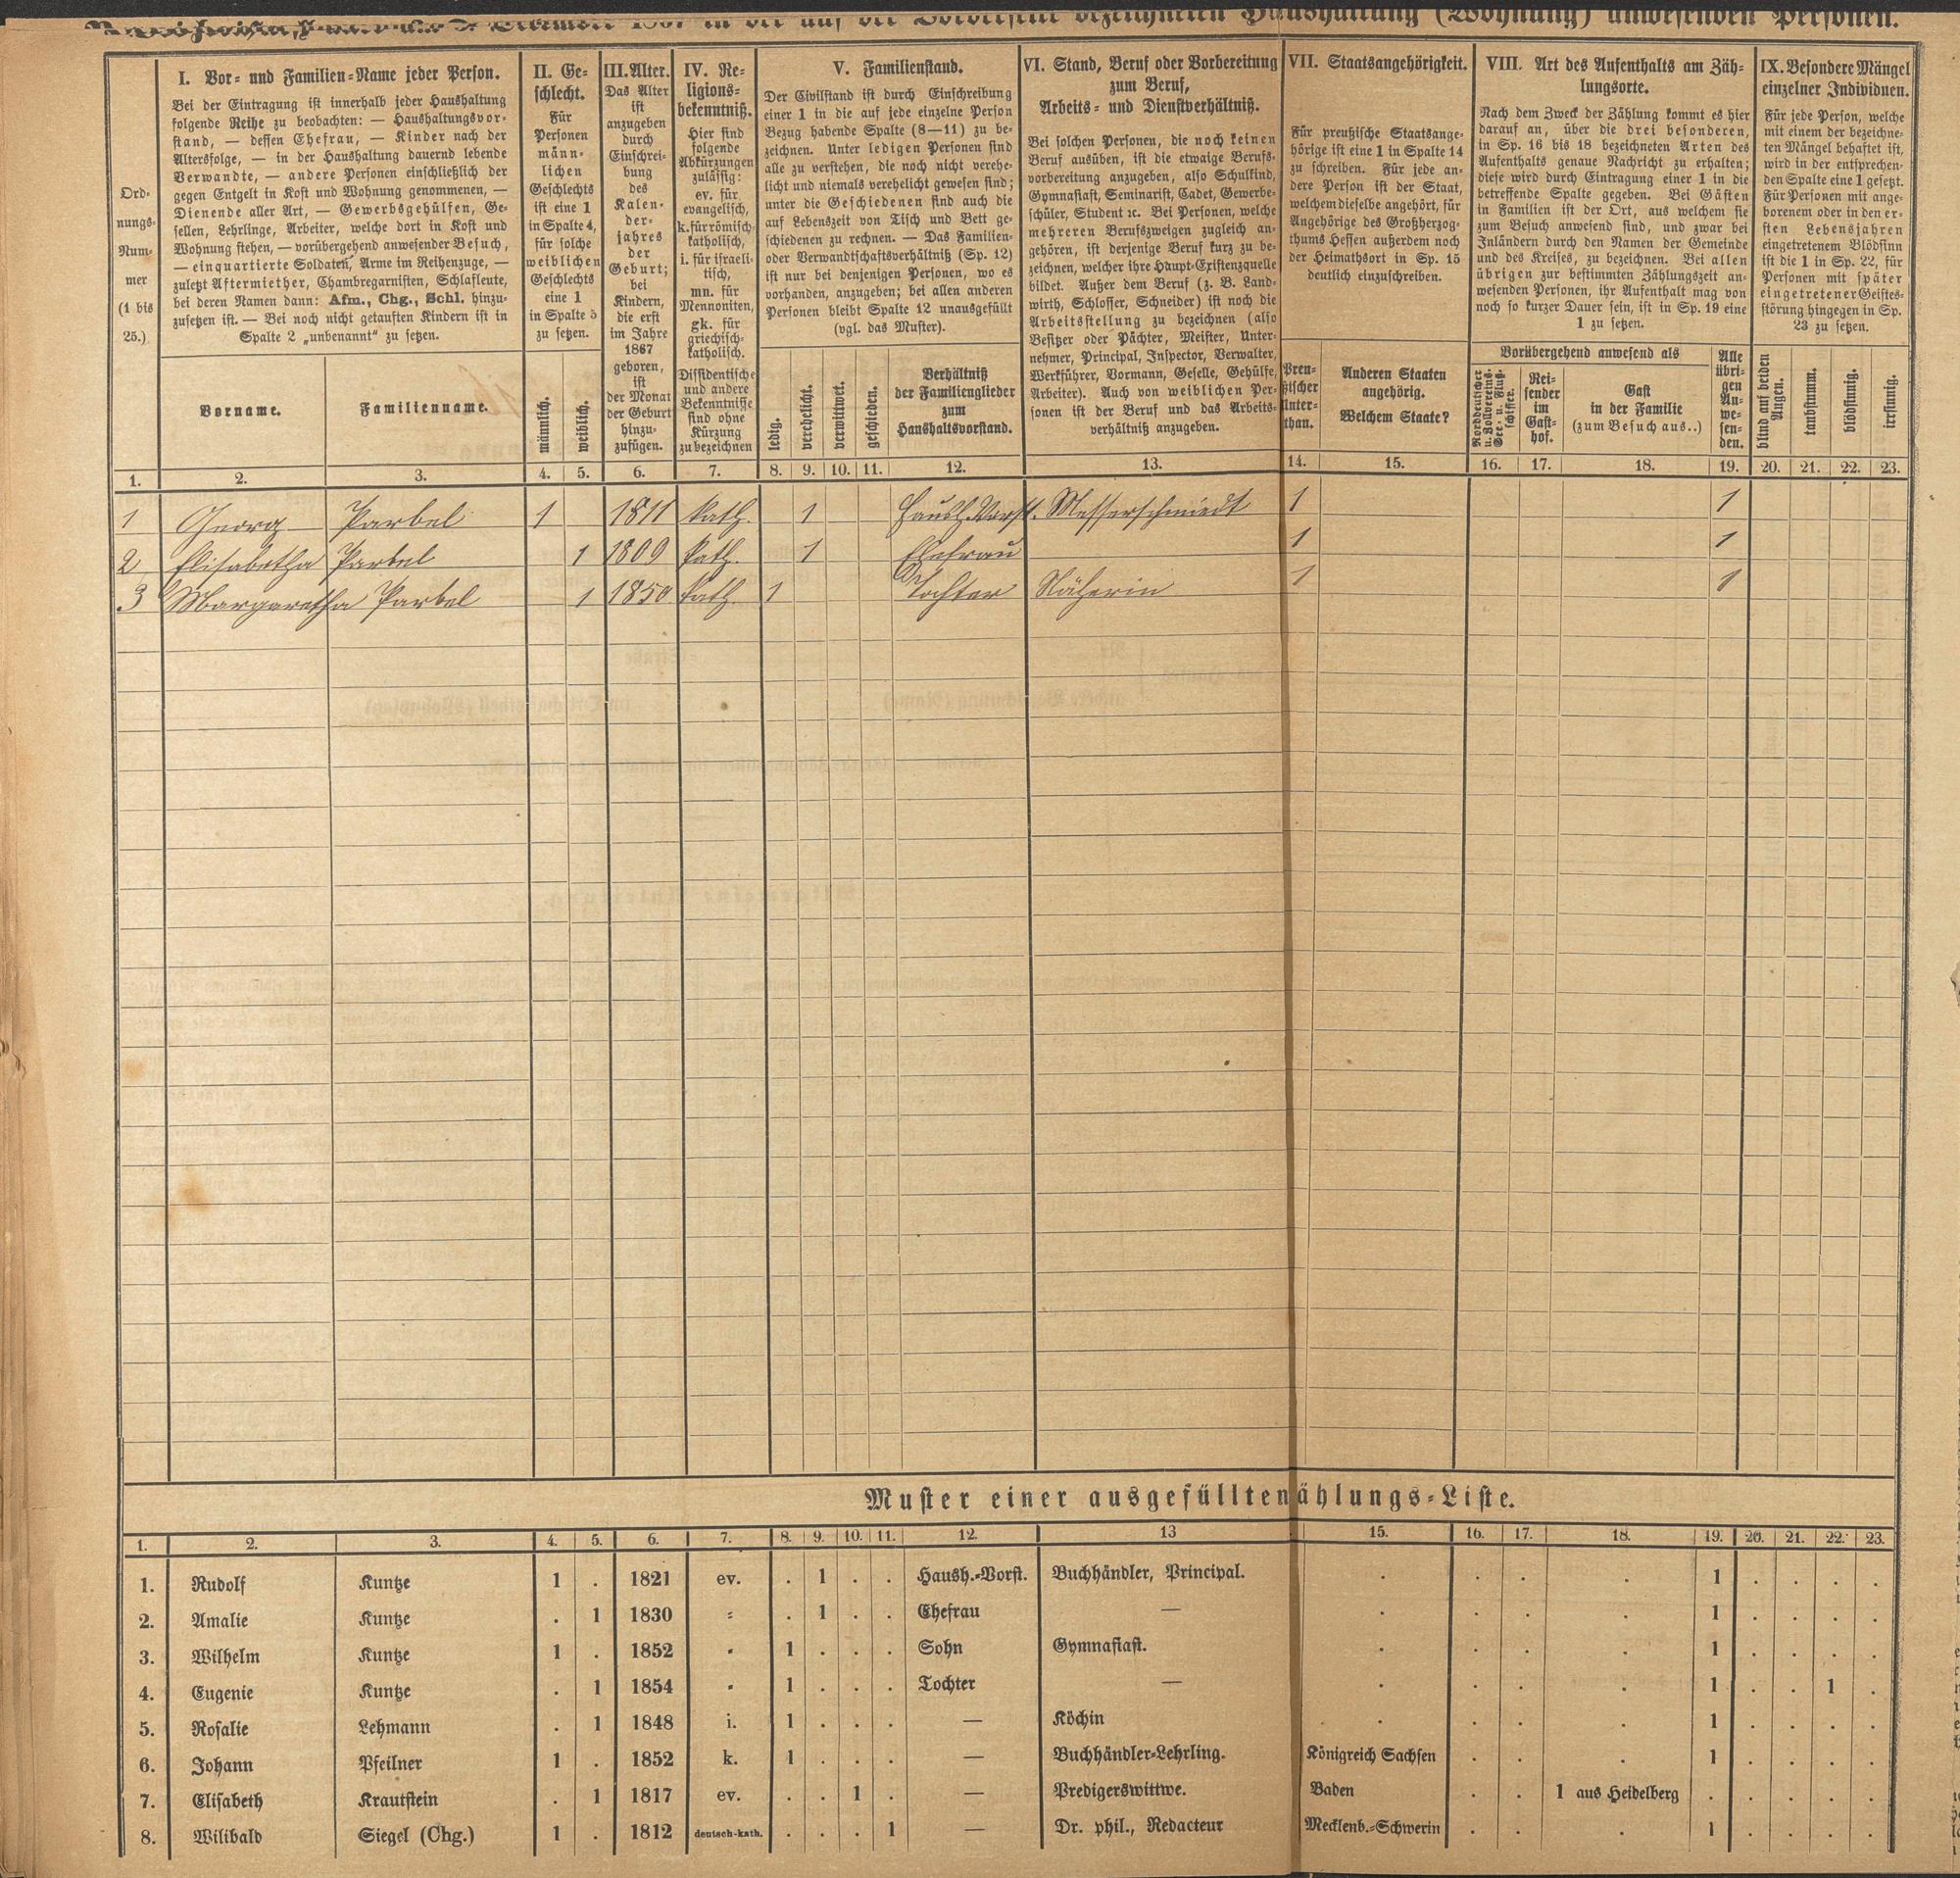 December 1867 in der auf der Vorderseite bezeichneten Haushaltung (Wohnung) anwesenden Personen.
Ord-
nungs-
Num-
mer
(1 bis
25.)
I. Vor- und Familien-Name jeder Person.
Bei der Eintragung ist innerhalb jeder Haushaltung
folgende Reihe zu beobachten: — Haushaltungsvor-
stand, — dessen Ehefrau, — Kinder nach der
Altersfolge, — in der Haushaltung dauernd lebende
Verwandte, — andere Personen einschließlich der
gegen Entgelt in Kost und Wohnung genommenen, —
Dienende aller Art, — Gewerbsgehülfen, Ge-
sellen, Lehrlinge, Arbeiter, welche dort in Kost und
Wohnung stehen, — vorübergehend anwesender Besuch,
— einquartierte Soldaten, Arme im Reihenzuge, —
zuletzt Aftermiether, Chambregarnisten, Schlafleute,
bei deren Namen dann: Afm., Chg., Schl. hinzu-
zusetzen ist. — Bei noch nicht getauften Kindern ist in
Spalte 2 „unbenannt" zu setzen.
Vorname.
Familienname.
II. Ge-
schlecht.
Für
Personen
männ-
lichen
Geschlechts
ist eine 1
in Spalte 4,
für solche
weiblichen
Geschlechts
eine 1
in Spalte 5
zu setzen.
männlich.
weiblich.
III. Alter.
Das Alter
ist
anzugeben
durch
Einschrei-
bung
des
Kalen-
der-
jahres
der
Geburt;
bei
Kindern,
die erst
im Jahre
1867
geboren,
ist
der Monat
der Geburt
hinzu-
zufügen.
IV. Re-
ligions-
bekenntniß.
Hier sind
folgende
Abkürzungen
zulässig:
ev. für
evangelisch,
k. für römisch-
katholisch,
i. für israeli-
tisch,
mn. für
Mennoniten,
gk. für
griechisch-
katholisch.
Dissidentische
und andere
Bekenntnisse
sind ohne
Kürzung
zu bezeichnen
V. Familienstand.
Der Civilstand ist durch Einschreibung
einer 1 in die auf jede einzelne Person
Bezug habende Spalte (8—11) zu be-
zeichnen. Unter ledigen Personen sind
alle zu verstehen, die noch nicht verehe-
licht und niemals verehelicht gewesen sind;
unter die Geschiedenen sind auch die
auf Lebenszeit von Tisch und Bett ge-
schiedenen zu rechnen. — Das Familien-
oder Verwandtschaftsverhältniß (Sp. 12)
ist nur bei denjenigen Personen, wo es
vorhanden, anzugeben; bei allen anderen
Personen bleibt Spalte 12 unausgefüllt
(vgl. das Muster).
ledig.
verehelicht.
verwittwet.
geschieden.
Verhältniß
der Familienglieder
zum
Haushaltsvorstand.
VI. Stand, Beruf oder Vorbereitung
zum Beruf,
Arbeits- und Dienstverhältniß.
Bei solchen Personen, die noch keinen
Beruf ausüben, ist die etwaige Berufs-
vorbereitung anzugeben, also Schulkind,
Gymnasiast, Seminarist, Cadet, Gewerbe-
schüler, Student ꝛc. Bei Personen, welche
mehreren Berufszweigen zugleich an-
gehören, ist derjenige Beruf kurz zu be-
zeichnen, welcher ihre Haupt-Existenzquelle
bildet. Außer dem Beruf (z. B. Land-
wirth, Schlosser, Schneider) ist noch die
Arbeitsstellung zu bezeichnen (also
Besitzer oder Pächter, Meister, Unter-
nehmer, Principal, Inspector, Verwalter,
Werkführer, Vormann, Geselle, Gehülfe,
Arbeiter). Auch von weiblichen Per-
sonen ist der Beruf und das Arbeits-
verhältniß anzugeben.
VII. Staatsangehörigkeit.
Für preußische Staatsange-
hörige ist eine 1 in Spalte 14
zu schreiben. Für jede an-
dere Person ist der Staat,
welchem dieselbe angehört, für
Angehörige des Großherzog-
thums Hessen außerdem noch
der Heimathsort in Sp. 15
deutlich einzuschreiben.
Preu-
ßischer
Unter-
than.
Anderen Staaten
angehörig.
Welchem Staate?
VIII. Art des Aufenthalts am Zäh-
lungsorte.
Nach dem Zweck der Zählung kommt es hier
darauf an, über die drei besonderen,
in Sp. 16 bis 18 bezeichneten Arten des
Aufenthalts genaue Nachricht zu erhalten;
diese wird durch Eintragung einer 1 in die
betreffende Spalte gegeben. Bei Gästen
in Familien ist der Ort, aus welchem sie
zum Besuch anwesend sind, und zwar bei
Inländern durch den Namen der Gemeinde
und des Kreises, zu bezeichnen. Bei allen
übrigen zur bestimmten Zählungszeit an-
wesenden Personen, ihr Aufenthalt mag von
noch so kurzer Dauer sein, ist in Sp. 19 eine
1 zu setzen.
Vorübergehend anwesend als
Norddeutscher
u. Zollvereins-
See- u. Fluß-
schiffer.
Rei-
sender
im
Gast-
hof.
Gast
in der Familie
(zum Besuch aus..)
Alle
übri-
gen
An-
we-
sen-
den.
IX. Besondere Mängel
einzelner Individuen.
Für jede Person, welche
mit einem der bezeichne-
ten Mängel behaftet ist,
wird in der entsprechen-
den Spalte eine 1 gesetzt.
Für Personen mit ange-
borenem oder in den er-
sten Lebensjahren
eingetretenem Blödsinn
ist die 1 in Sp. 22, für
Personen mit später
eingetretener Geistes-
störung hingegen in Sp.
23 zu setzen.
blind auf beiden
Augen.
taubstumm.
blödsinnig.
irrsinnig.
1. 2. 3. 4. 5. 6. 7. 8. 9. 10. 11. 12. 13. 14. 15. 16. 17. 18. 19. 20. 21. 22. 23.
1 Georg Parbel 1 1811 kath. 1 Haush. Vorst. Messerschmiedt 1 1
2 Elisabetha Parbel 1 1809 kath. 1 Ehefrau 1 1
3 Margaretha Parbel 1 1850 kath. 1 Tochter Näherin 1 1
Muster einer ausgefüllten ählungs-Liste.
1. 2. 3. 4. 5. 6. 7. 8. 9. 10. 11. 12. 13 15. 16. 17. 18. 19. 20. 21. 22. 23.
1. Rudolf Kuntze 1 . 1821 ev. . 1 . . Haush.-Vorst. Buchhändler, Principal. . . . . 1 . . . .
2. Amalie Kuntze . 1 1830 „ . 1 . . Ehefrau — . . . . 1 . . . .
3. Wilhelm Kuntze 1 . 1852 „ 1 . . . Sohn Gymnasiast. . . . . 1 . . . .
4. Eugenie Kuntze . 1 1854 „ 1 . . . Tochter — . . . . 1 . . 1 .
5. Rosalie Lehmann . 1 1848 i. 1 . . . — Köchin . . . . 1 . . . .
6. Johann Pfeilner 1 . 1852 k. 1 . . . — Buchhändler-Lehrling. Königreich Sachsen . . . 1 . . . .
7. Elisabeth Krautstein . 1 1817 ev. . . 1 . — Predigerswittwe. Baden . . 1 aus Heidelberg . . . . .
8. Wilibald Siegel (Chg.) 1 . 1812 deutsch-kath. . . . 1 — Dr. phil., Redacteur Mecklenb.-Schwerin . . . 1 . . . .